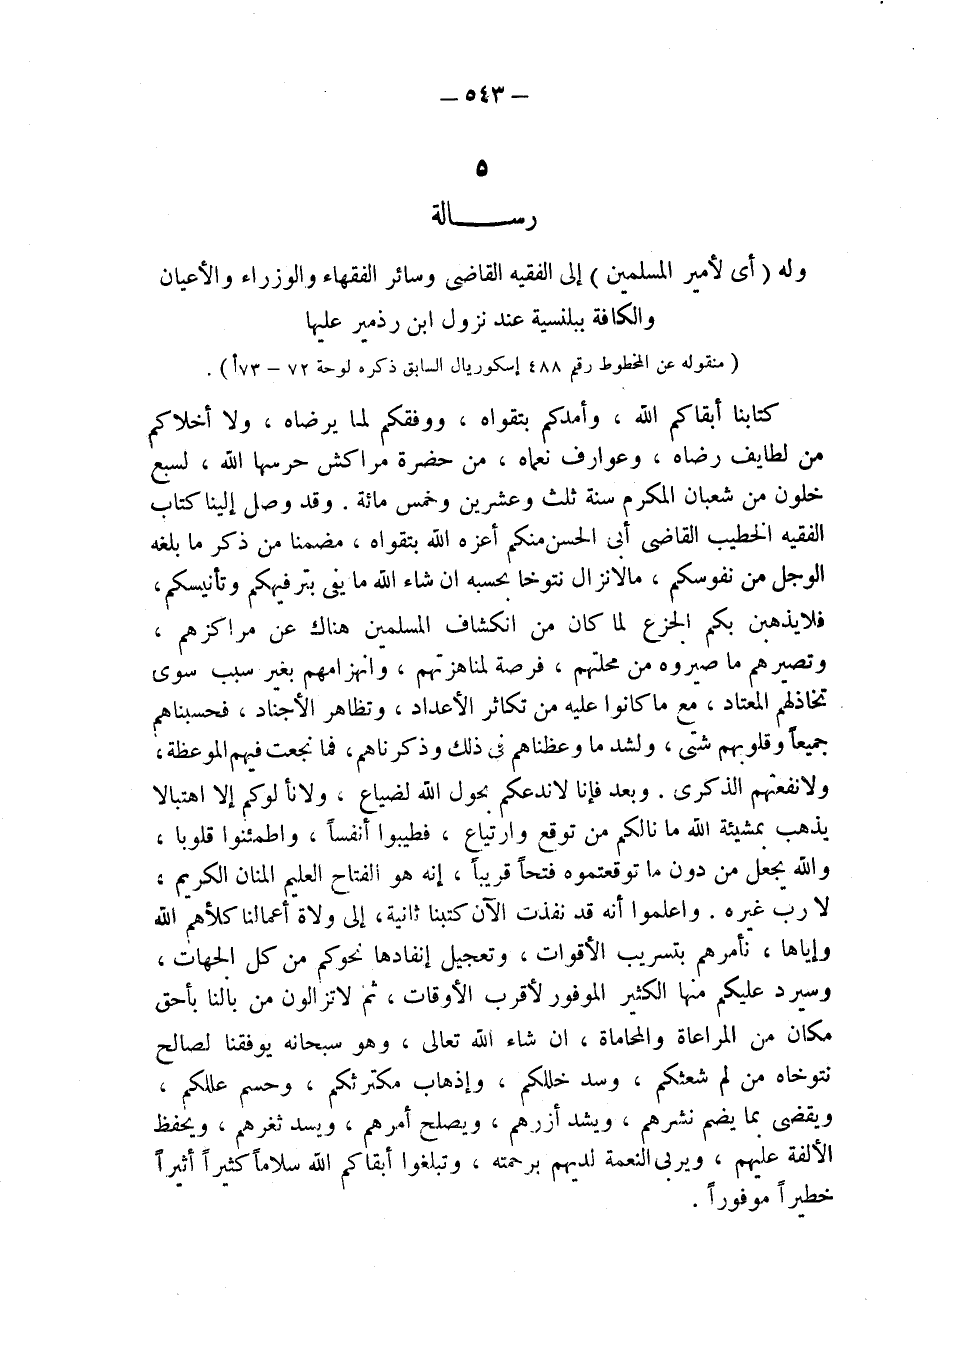 — ٥٤٣ —
٥
رســـــالة
وله ( أى لأمير المسلمين ) إلى الفقيه القاضى وسائر الفقهاء والوزراء والأعيان
والكافة ببلنسية عند نزول ابن رذمير عليها
( منقوله عن المخطوط رقم ٤٨٨ إسكوريال السابق ذكره لوحة ٧٢ – ٧٣أ ) .
كتابنا أبقاكم الله ، وأمدكم بتقواه ، ووفقكم لما يرضاه ، ولا أخلاكم
من لطايف رضاه ، وعوارف نعماه ، من حضرة مراكش حرسها الله ، لسبع
خلون من شعبان المكرم سنة ثلث وعشرين وخمس مائة . وقد وصل إلينا كتاب
الفقيه الخطيب القاضى أبى الحسن منكم أعزه الله بتقواه ، مضمنا من ذكر ما بلغه
الوجل من نفوسكم ، مالانزال نتوخا بحسبه ان شاء الله ما يفى بترفيهكم وتأنيسكم ،
فلايذهبن بكم الجزع لما كان من انكشاف المسلمين هناك عن مراكزهم ،
وتصيرهم ما صيروه من محلتهم ، فرصة لمناهزتهم ، وانهزامهم بغير سبب سوى
تخاذلهم المعتاد ، مع ماكانوا عليه من تكاثر الأعداد ، وتظاهر الأجناد ، فحسبناهم
جميعاً وقلوبهم شتى ، ولشد ما وعظناهم فى ذلك وذكرناهم ، فما نجعت فيهم الموعظة ،
ولانفعتهم الذكرى . وبعد فإنا لاندعكم بحول الله لضياع ، ولانألوكم إلا اهتبالا
يذهب بمشيئة الله ما نالكم من توقع وارتياع ، فطيبوا أنفساً ، واطمئنوا قلوبا ،
والله يجعل من دون ما توقعتموه فتحاً قريباً ، إنه هو الفتاح العليم المنان الكريم ،
لا رب غيره . واعلموا أنه قد نفذت الآن كتبنا ثانية ، إلى ولاة أعمالنا كلأهم الله
وإياها ، نأمرهم بتسريب الأقوات ، وتعجيل إنفادها نحوكم من كل الجهات ،
وسيرد عليكم منها الكثير الموفور لأقرب الأوقات ، ثم لاتزالون من بالنا بأحق
مكان من المراعاة والمحاماة ، ان شاء الله تعالى ، وهو سبحانه يوفقنا لصالح
نتوخاه من لم شعثكم ، وسد خللكم ، وإذهاب مكترثكم ، وحسم عللكم ،
ويقضى بما يضم نشرهم ، ويشد أزرهم ، ويصلح أمرهم ، ويسد ثغرهم ، ويحفظ
الألفة عليهم ، ويربى النعمة لديهم برحمته ، وتبلغوا أبقاكم الله سلاماً كثيراً أثيراً
خطيراً موفوراً .